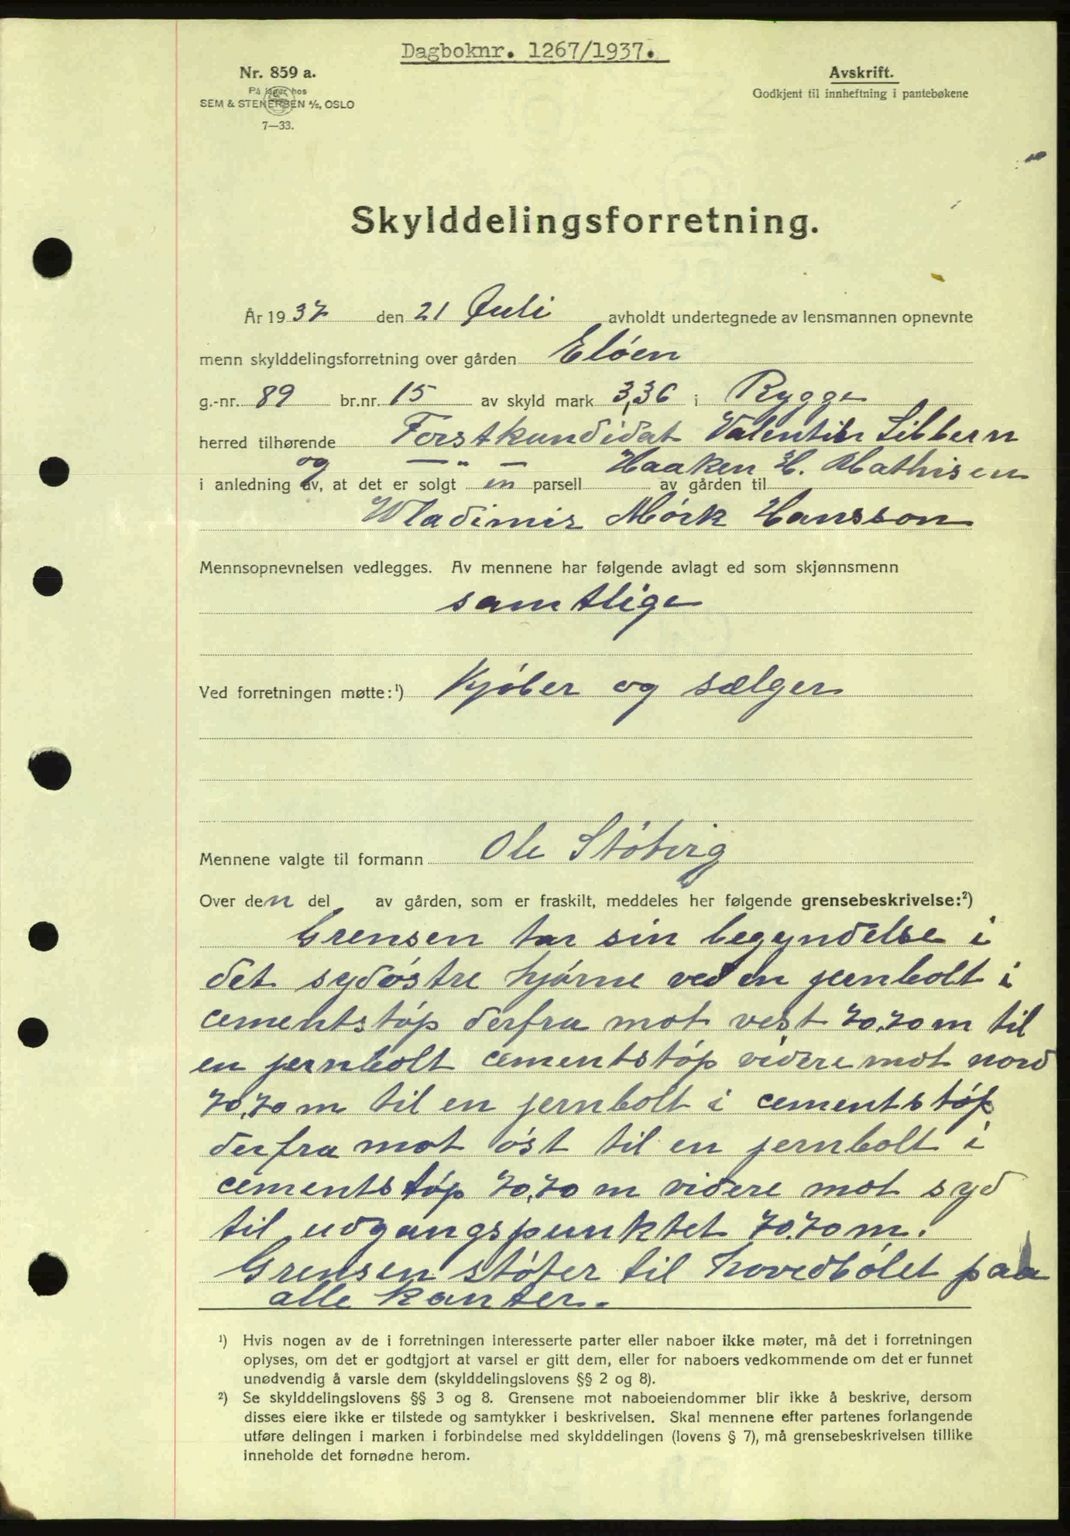 Dagboknr. 1267/1937.
Nr. 859 a.
På lager hos
SEM & STENERSEN A/S, OSLO
7—33.
Avskrift.
Godkjent til innheftning i pantebøkene
Skylddelingsforretning.
År 1937 den 21 Juli avholdt undertegnede av lensmannen opnevnte
menn skylddelingsforretning over gården Eløen
g.-nr. 89 br.nr. 15 av skyld mark 3,36 i Rygge
herred tilhørende Forstkandidat Valentin Sibbern
og — „ — Haaken H. Mathisen
i anledning av, at det er solgt en parsell av gården til
Wladimir Mørk Hansson
Mennsopnevnelsen vedlegges. Av mennene har følgende avlagt ed som skjønnsmenn
samtlige
Ved forretningen møtte:¹) Kjøber og sælger
Mennene valgte til formann Ole Støtvig
Over den del av gården, som er fraskilt, meddeles her følgende grensebeskrivelse:²)
Grensen tar sin begyndelse i
det sydøstre hjørne ved en jernbolt i
cementstøp derfra mot vest 70,70 m til
en jernbolt cementstøp videre mot nord
70,70 m til en jernbolt i cementstøp
derfra mot øst til en jernbolt i
cementstøp 70,70 m videre mot syd
til udgangspunktet 70.70 m.
Grensen støter til hovedbølet paa
alle kanter.
¹) Hvis nogen av de i forretningen interesserte parter eller naboer ikke møter, må det i forretningen
oplyses, om det er godtgjort at varsel er gitt dem, eller for naboers vedkommende om det er funnet
unødvendig å varsle dem (skylddelingslovens §§ 2 og 8).
²) Se skylddelingslovens §§ 3 og 8. Grensene mot naboeiendommer blir ikke å beskrive, dersom
disses eiere ikke er tilstede og samtykker i beskrivelsen. Skal mennene efter partenes forlangende
utføre delingen i marken i forbindelse med skylddelingen (lovens § 7), må grensebeskrivelsen tillike
inneholde det fornødne herom.